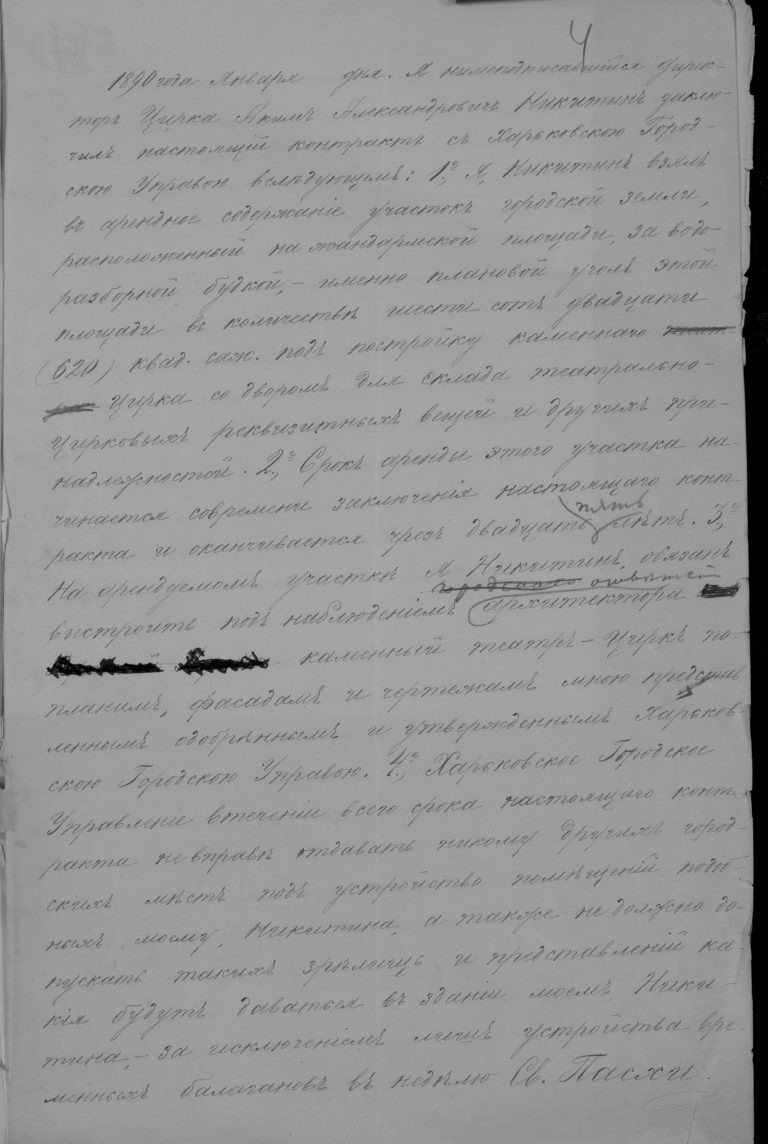 4
1890 года Января дня. Я нижеподписавшийся Дирек-
торъ Цирка Акимъ Александровичъ Никитинъ заклю-
чилъ настоящій контрактъ съ Харьковскою Город-
скою Управою вслѣдующемъ: 1е, Я, Никитинъ взялъ
въ арендное содержаніе участокъ городской земли,
расположенный на жандармской площади, за водо-
разборной будкой, – именно плановой уголъ этой
площади въ количествѣ шести сотъ двадцати
(620) квад. саж. подъ постройку каменнаго
Цирка со дворомъ для склада театрально-
цирковыхъ реквизитныхъ вещей и другихъ при-
надлежностей. 2е, Срокъ аренды этого участка на-
чинается современи заключенія настоящаго конт
ракта и оканчивается чрезъ двадцать пять лѣтъ. 3е,
На арендуемомъ участкѣ я Никитинъ, обязанъ
городскаго
выстроить подъ наблюденіемъ архитектора
каменный театръ – Циркъ по-
планамъ, фасадамъ и чертежамъ мною представ
леннымъ одобрѣннымъ и утвержденнымъ Харьков-
скою Городскою Управою. 4е, Харьковское Городское
Управленіе втеченіи всего срока настоящаго конт
ракта невправѣ отдавать никому другихъ город-
скихъ мѣстъ подъ устройство помѣщеній подоб
ныхъ моему, Никитина, а также недолжно до-
пускать такихъ зрѣлищъ и представленій ка-
кія будутъ даваться въ зданіи моемъ, Ники-
тина, – за исключеніемъ лишь устройства вре-
менныхъ балагановъ въ недѣлю Св. Пасхи.